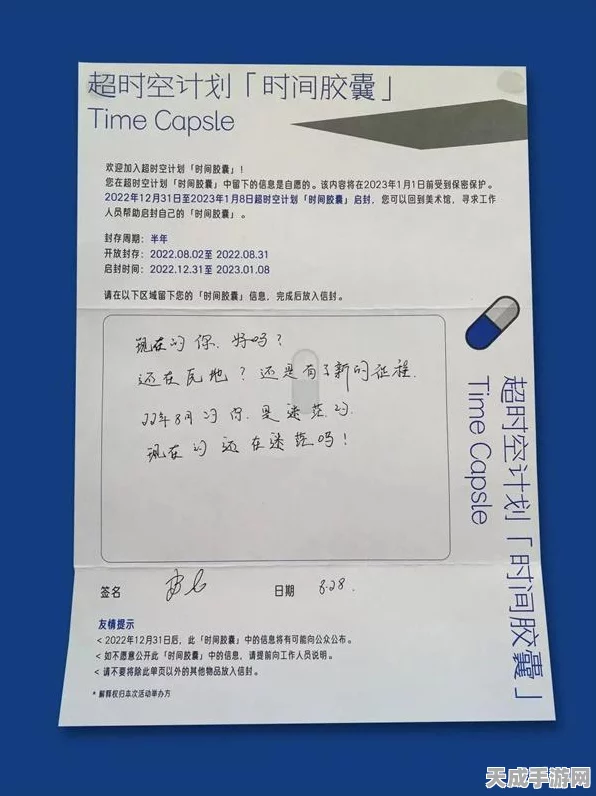 超时空计划「时间胶囊」
Time Capsle
欢迎加入超时空计划「时间胶囊」!
您在超时空计划「时间胶囊」中留下的信息是自愿的。该内容将在2023年1月1日前受到保密保护。
2022年12月31日至2023年1月8日超时空计划「时间胶囊」启封,您可以回到美术馆,寻求工作
人员帮助启封自己的「时间胶囊」。
封存周期:半年
开放封存:2022.08.02至2022.08.31
启封时间:2022.12.31至2023.01.08
请在以下区域留下您的「时间胶囊」信息,完成后放入信封。
现在的你.好吗?
还在民地?还是有了新的征程.
22年8月的你.是迷茫的.
现在的还在迷茫吗!
签名
日期 8.28.
友情提示
< 2022年12月31日后,此「时间胶囊」中的信息将有可能向公众公布。
< 如不愿意公开此「时间胶囊」中的信息,请提前向工作人员说明。
< 请不要将除此单页以外的其他物品放入信封。
* 解释权归本次活动举办方
超时空计划「时间胶囊」
Time Capsle
天成手游网